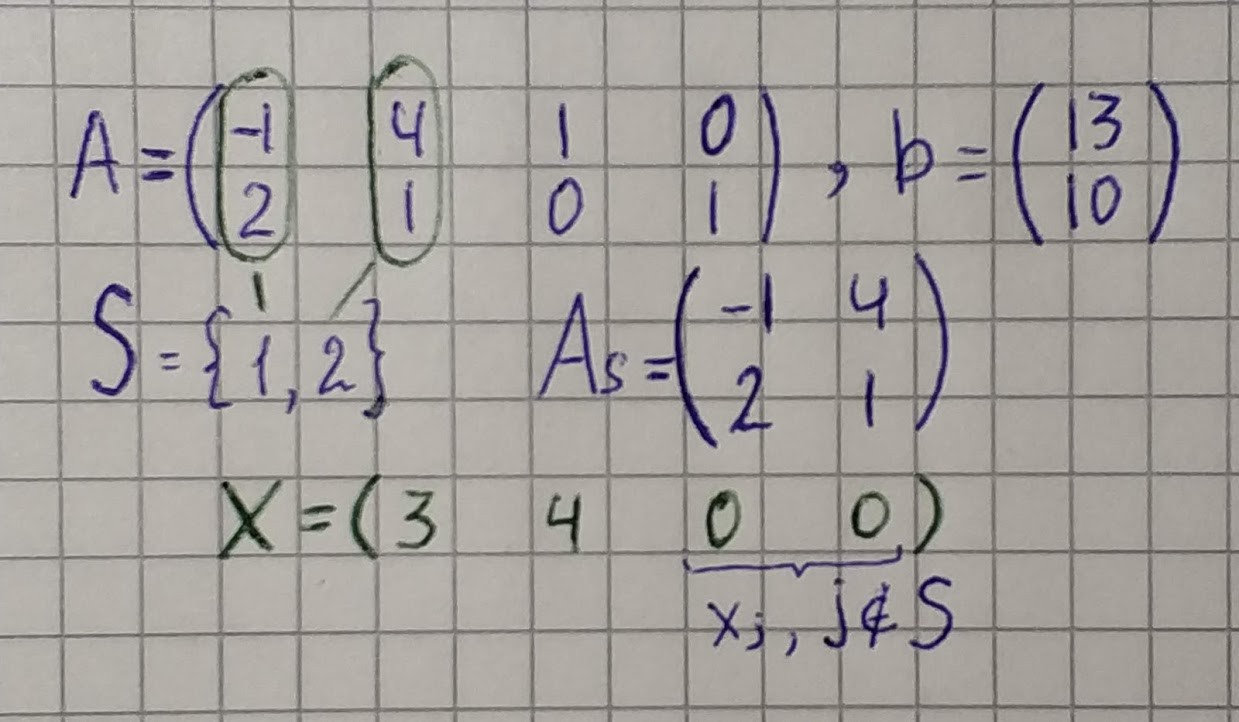 A = ( -1 4 1 0 ) , b = ( 13 )
( 2 1 0 1 ) ( 10 )
S = {1, 2} As = ( -1 4 )
( 2 1 )
X = ( 3 4 0 0 )
xj, j∉S